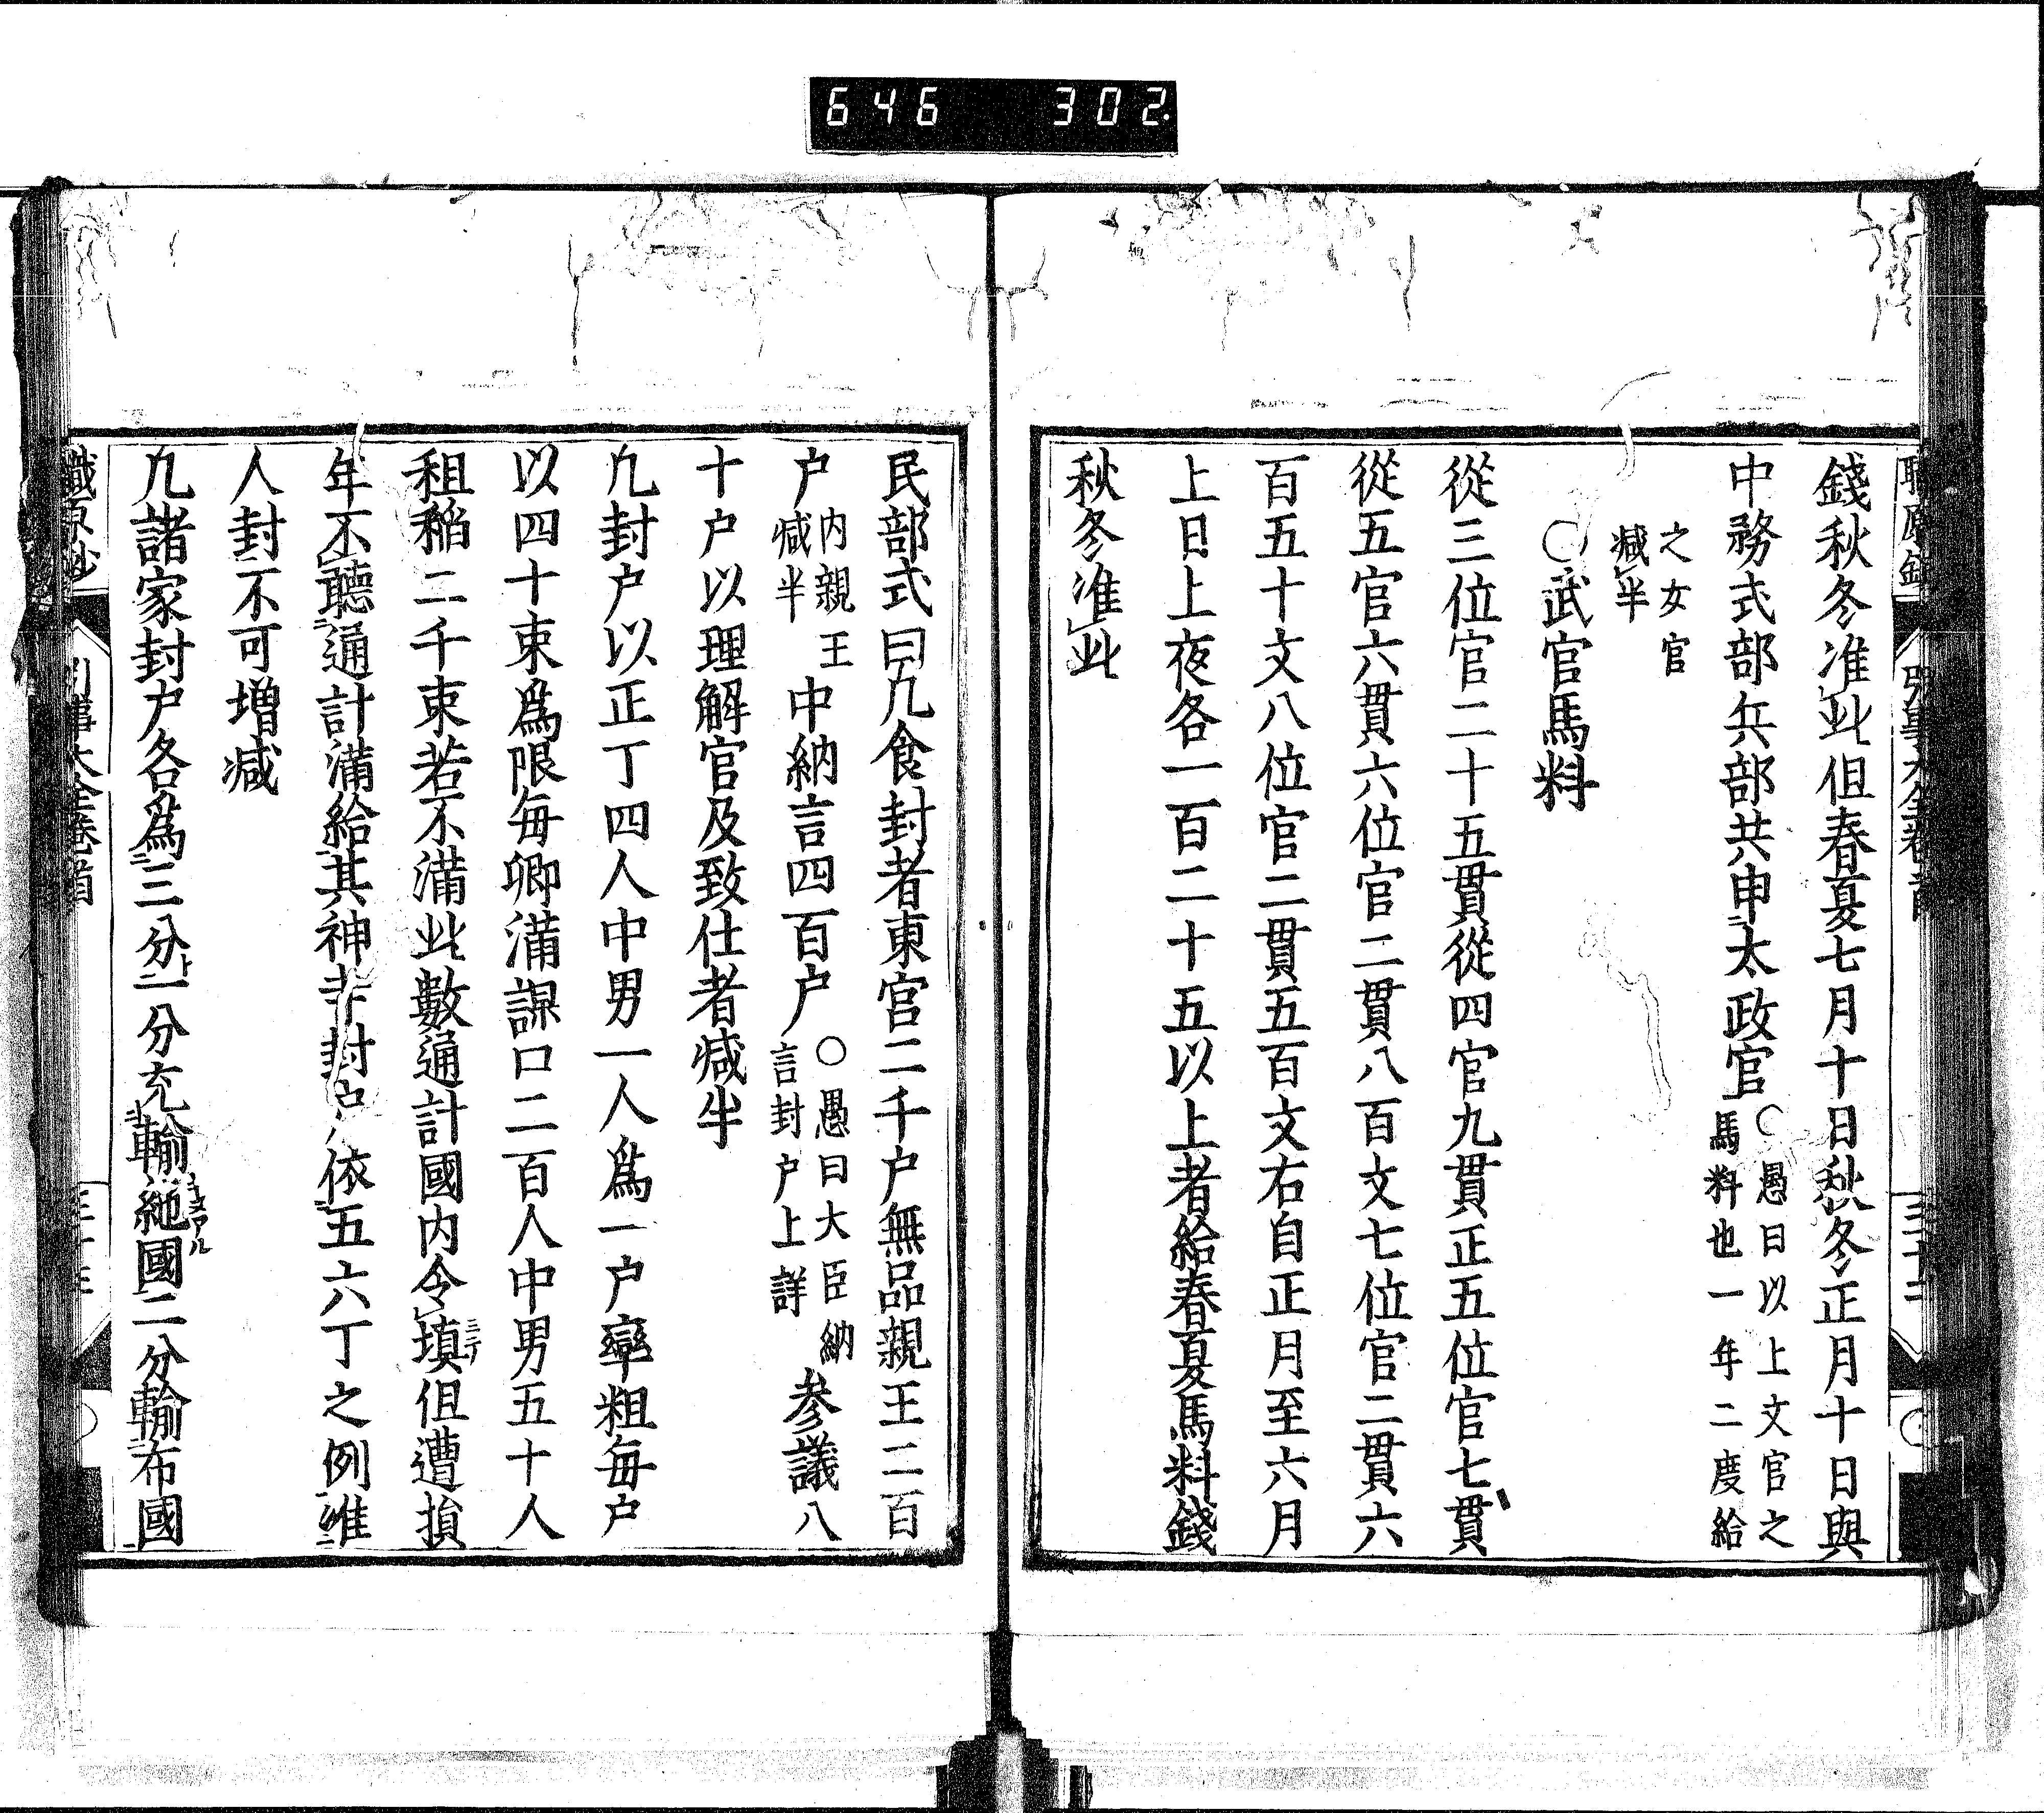 646 302.
錢秋冬准此但春夏七月十日秋冬正月十日與
中務式部兵部共申太政官
○愚曰以上文官之
馬料也一年二度給
之女官
减半
○武官馬料
從三位官二十五貫從四官九貫正五位官七貫
從五官六貫六位官二貫八百文七位官二貫六
百五十文八位官二貫五百文右自正月至六月
上日上夜各一百二十五以上者給春夏馬料錢
秋冬准此
民部式曰凢食封者東宮二千户無品親王二百
户
内親王
减半
中納言四百户
○愚曰大臣納
言封户上詳
参議八
十户以理解官及致仕者减半
凢封户以正丁四人中男一人爲一户率粗毎户
以四十束爲限毎郷満課口二百人中男五十人
租稲二千束若不満此數通計國内令填但遭損
年不聽通計満給其神寺封户依五六丁之例唯
人封不可增减
凢諸家封户各爲三分一分充輸絁國二分輸布國
職原鈔
引事大全卷首
三十三